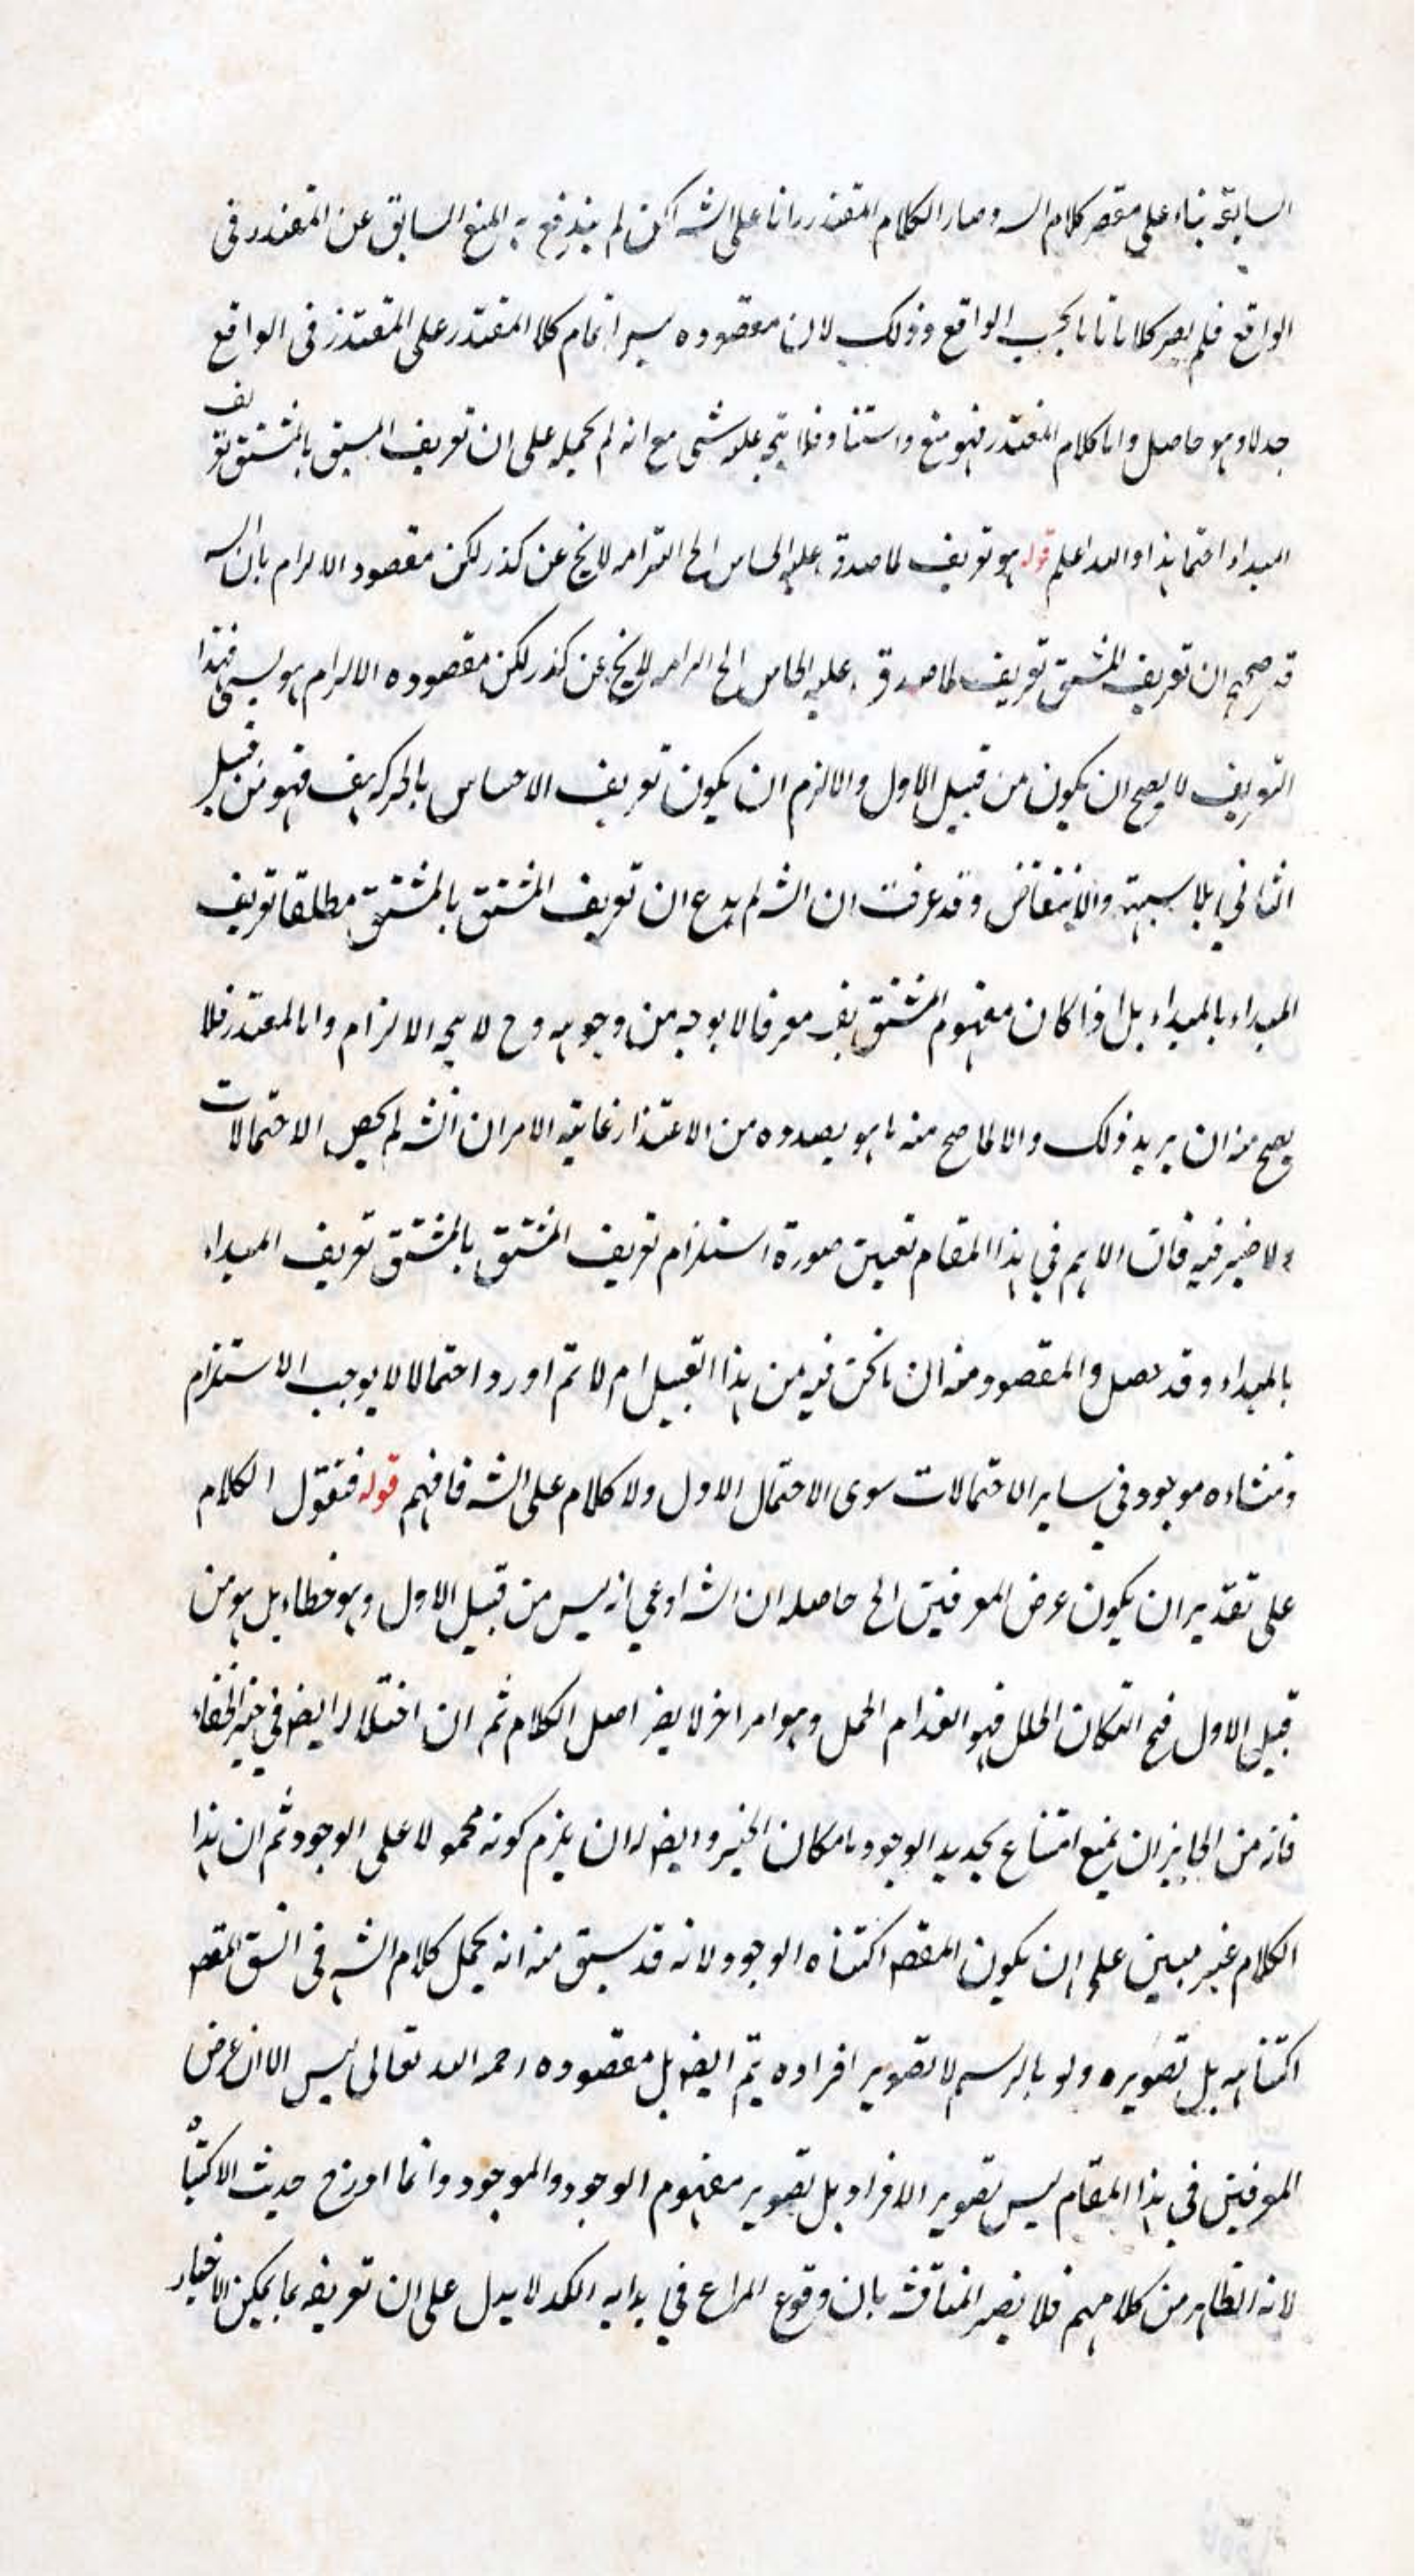 السابقة بناء على مقصر كلام السه وصار الكلام المعتذر راما على الشه لكن لم يندفع به المنع السابق عن المعتذر فى
الواقع فلم يصر كلاما تاما بحسب الواقع وذلك لان مقصوده ليس اتمام كلام المعتذر على المعتذر فى الواقع
جدلا وهو حاصل واما كلام المعتذر فهو منع واستناد فلا يتجه عليه شئ مع انه لم يحمله على ان تعريف المشتق بالمشتق تعريف
المبداء احتما هذا والله اعلم قوله هو تعريف لما صدق عليه الحاس الخ التزامه لا يخ عن كذر لكن مقصود الالزام بان السه
قد صحح ان تعريف المشتق تعريف لما صدق عليه الحاس الخ التزامه لا يخ عن كذر لكن مقصوده الالزام هو ليس فهذا
التعريف لا يصح ان يكون من قبيل الاول والا لزم ان يكون تعريف الاحساس بالحركة هف فهو من قبيل
الثانى بلا شبهة والانتقاض وقد عرفت ان الشه لم يدع ان تعريف المشتق بالمشتق مطلقا تعريف
المبداء بالمبداء بل اذا كان مفهوم المشتق يفـ معرفا لا بوجه من وجوهه وح لا يتجه الالزام واما المعتذر فلا
يصح منه ان يريد ذلك والا لما صح منه ما هو بصدده من الاعتذار غاية الامر ان الشه لم يحصر الاحتمالات
ولا ضير فيه فان الاهم فى هذا المقام تعيين صورة استلزام تعريف المشتق بالمشتق تعريف المبداء
بالمبداء وقد حصل والمقصود منه ان ما نحن فيه من هذا القبيل ام لا ثم اورد احتمالا لا يوجب الاستلزام
ومنشاءه موجود فى سائر الاحتمالات سوى الاحتمال الاول ولا كلام على الشه فافهم قوله فنقول الكلام
على تقدير ان يكون غرض المعرفين الخ حاصله ان الشه ادعى انه ليس من قبيل الاول وهو خطاء بل هو من
قبيل الاول فح ان كان الخلل فهو انعدام الحمل وهو امر اخر لا يضر اصل الكلام ثم ان اختلاله ايضا فى حيز الخفاء
فانه من الجايز ان يمنع امتناع تحديد الوجود بامكان الخبر وايضا له ان يلزم كونه محمولا على الوجود ثم ان هذا
الكلام غير مبين على ان يكون المقصـ اكتناه الوجود لانه قد سبق منه انه يحمل كلام الشه فى الشق المقصـ
اكتناهه بل تصويره ولو بالرسم لا تصوير افراده يتم ايضا بل مقصوده رحمه الله تعالى ليس الا ان غرض
المعرفين فى هذا المقام ليس تصوير الافراد بل تصوير مفهوم الوجود والموجود وانما اورد ح حديث الاكتناه
لانه الظاهر من كلامهم فلا يضر المناقشة بان وقوع النزاع فى بداهة الكنه لا يدل على ان تعريفه بما يمكن الاخبار